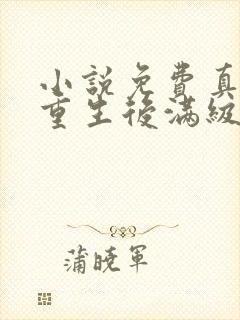 小說免費真
重生後滿級
蒲曉軍